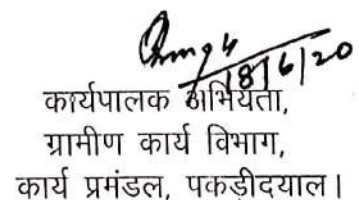 18/6/20
कार्यपालक अभियंता,
ग्रामीण कार्य विभाग,
कार्य प्रमंडल, पकड़ीदयाल।